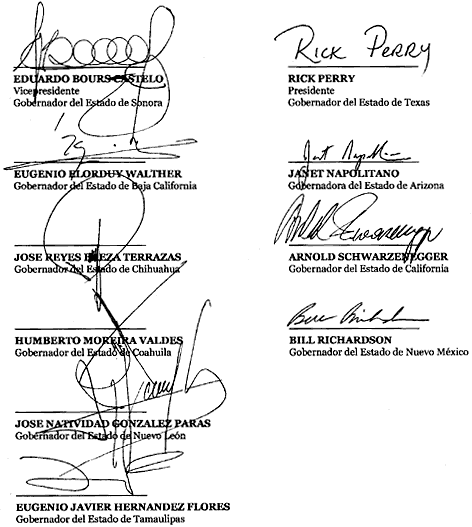 EDUARDO BOURS CASTELO
Vicepresidente
Gobernador del Estado de Sonora
EUGENIO ELORDUY WALTHER
Gobernador del Estado de Baja California
JOSE REYES BAEZA TERRAZAS
Gobernador del Estado de Chihuahua
HUMBERTO MOREIRA VALDES
Gobernador del Estado de Coahuila
JOSE NATIVIDAD GONZALEZ PARAS
Gobernador del Estado de Nuevo León
EUGENIO JAVIER HERNANDEZ FLORES
Gobernador del Estado de Tamaulipas
RICK PERRY
RICK PERRY
Presidente
Gobernador del Estado de Texas
Janet Napolitano
JANET NAPOLITANO
Gobernadora del Estado de Arizona
Arnold Schwarzenegger
ARNOLD SCHWARZENEGGER
Gobernador del Estado de California
Bill Richardson
BILL RICHARDSON
Gobernador del Estado de Nuevo México